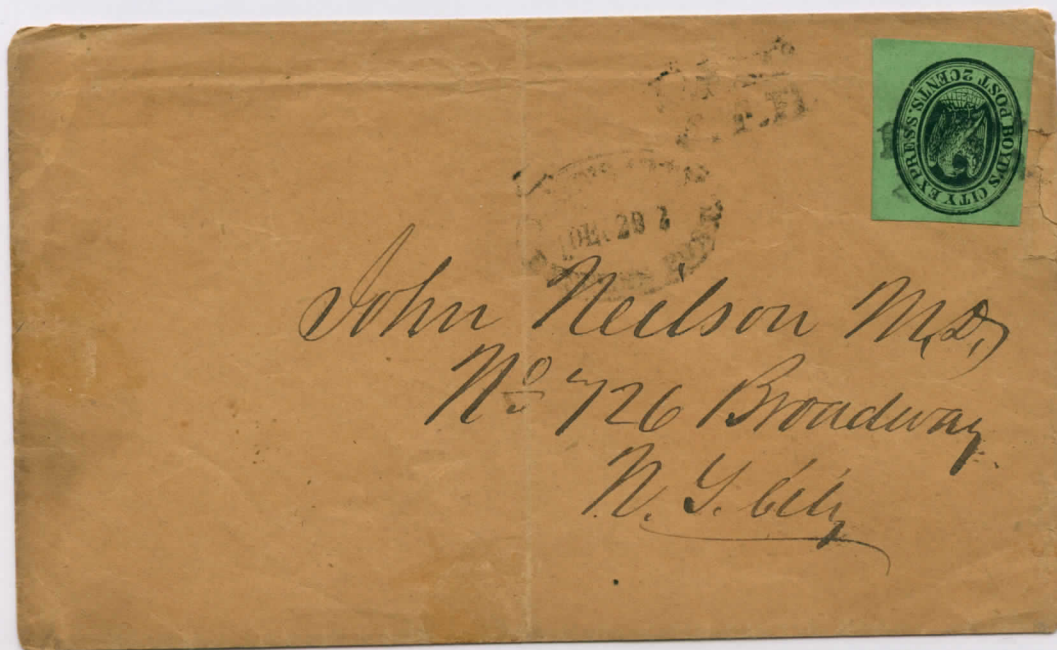 BOYD'S CITY EXPRESS. POST 2CENTS.
John Neilson M.D,
Nº 726 Broadway
N. Y. City